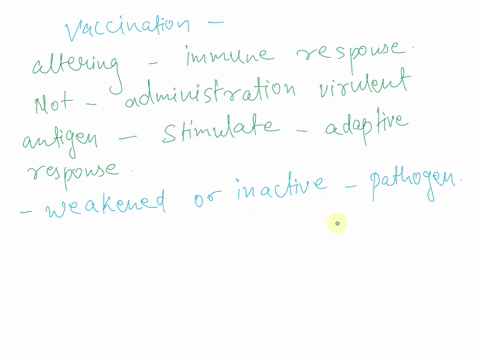 Vaccination -
altering - immune response.
Not - administration virulent
antigen - Stimulate - adaptive
response.
- weakened or inactive - pathogen.